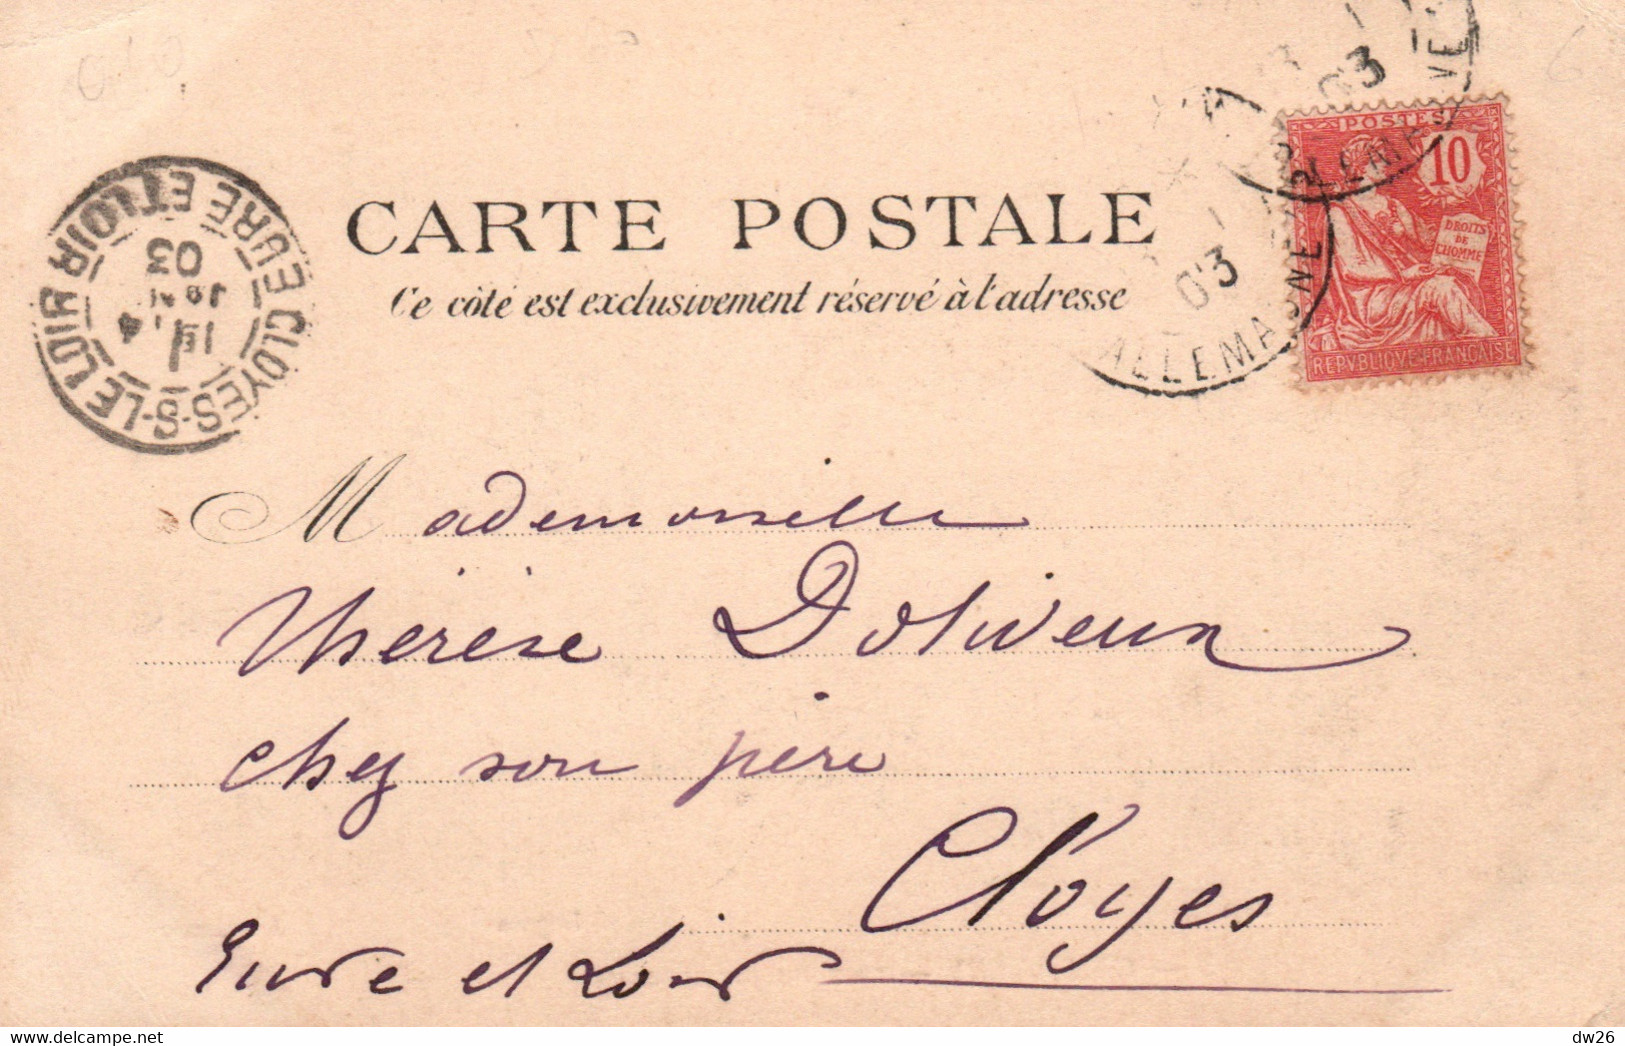 CARTE POSTALE
Ce côté est exclusivement réservé à l'adresse
POSTES
10
DROITS
DE
L'HOMME
REPVBLIQVE FRANÇAISE
03
03
ALLEMAGNE
CLOYES-S-LE LOIR
EURE ET LOIR
03
Mademoiselle
Thérèse Doliveux
chez son père
Cloyes
Eure et Loir
dw26